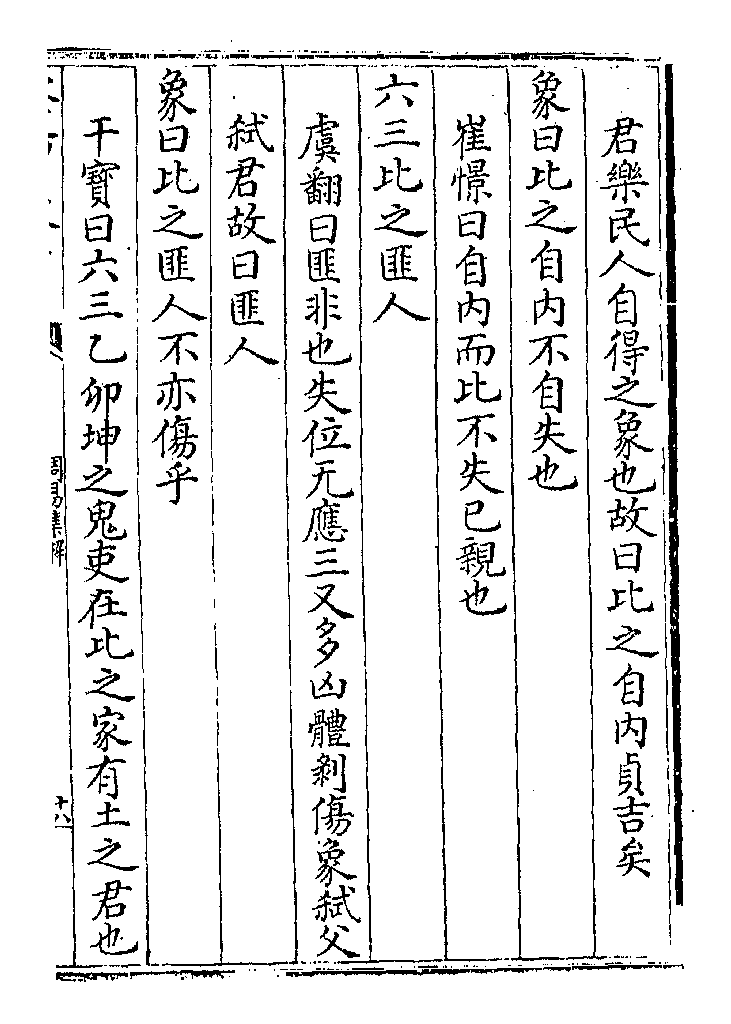 君樂民人自得之象也故曰比之自内貞吉矣
象曰比之自内不自失也
崔憬曰自内而比不失已親也
六三比之匪人
虞翻曰匪非也失位无應三又多凶體剥傷象弑父
弑君故曰匪人
象曰比之匪人不亦傷乎
干寶曰六三乙卯坤之鬼吏在比之家有土之君也
周易集解
十八